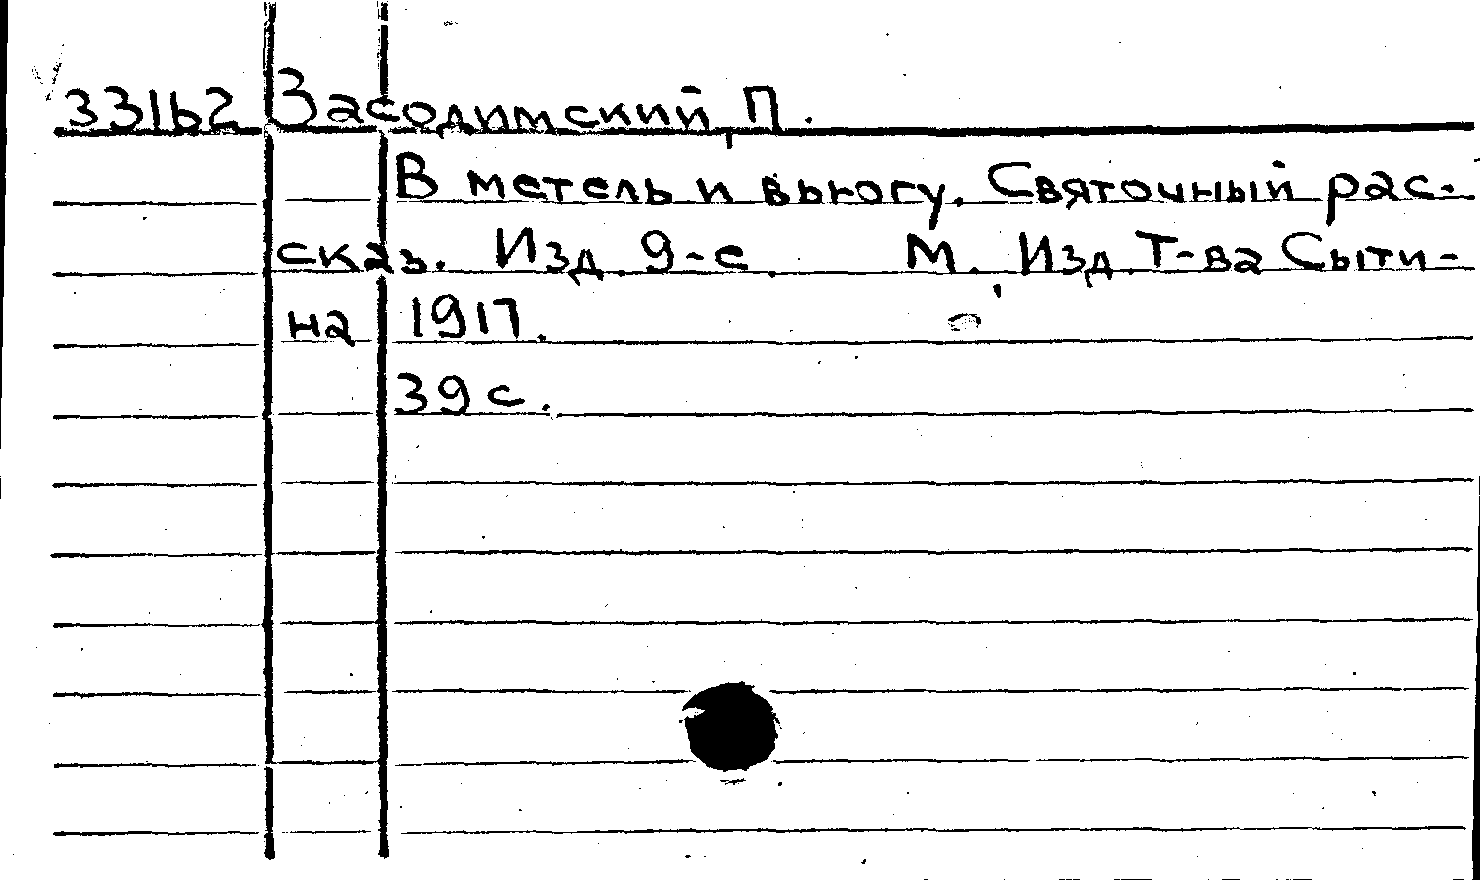 33162 Засодимский, П.
В метель и вьюгу. Святочный рас-
сказ. Изд. 9-е. М., Изд. Т-ва Сыти-
на 1917.
39 с.